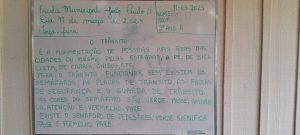 Escola Municipal João Paulo II
Dia 11 de março de 2025
terça-feira
11-03-2025
2º ANO A
O TRÂNSITO
É A MOVIMENTAÇÃO DE PESSOAS NAS RUAS DAS
CIDADES OU MESMO PELAS ESTRADAS, A PÉ, DE BICI-
CLETA, DE CARRO, ÔNIBUS, ETC.
PARA O TRÂNSITO FUNCIONAR BEM EXISTEM OS
SEMÁFOROS, AS PLACAS DE TRÂNSITO, AS FAIXAS
DE SEGURANÇA E O GUARDA DE TRÂNSITO.
AS CORES DO SEMÁFORO SÃO VERDE PASSE, AMARE-
LO ATENÇÃO E VERMELHO PARE.
EXISTE O SEMÁFORO DE PEDESTRES, VERDE SIGNIFICA
PASSE E VERMELHO PARE.